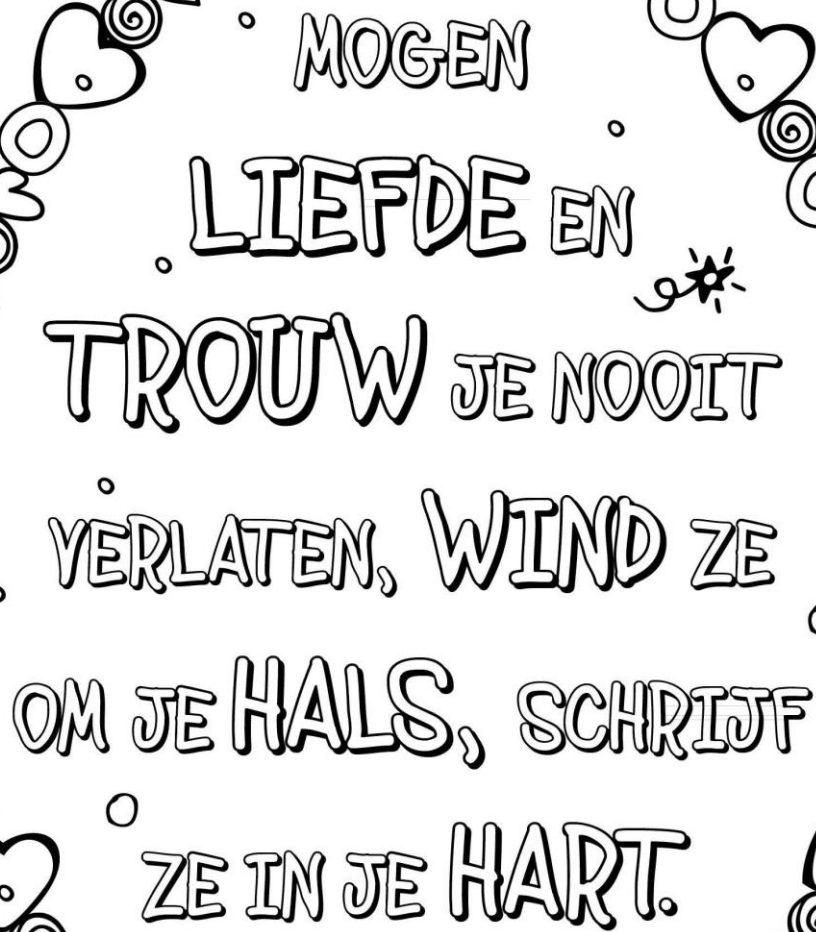 MOGEN
LIEFDE EN
TROUW JE NOOIT
VERLATEN, WIND ZE
OM JE HALS, SCHRIJF
ZE IN JE HART.